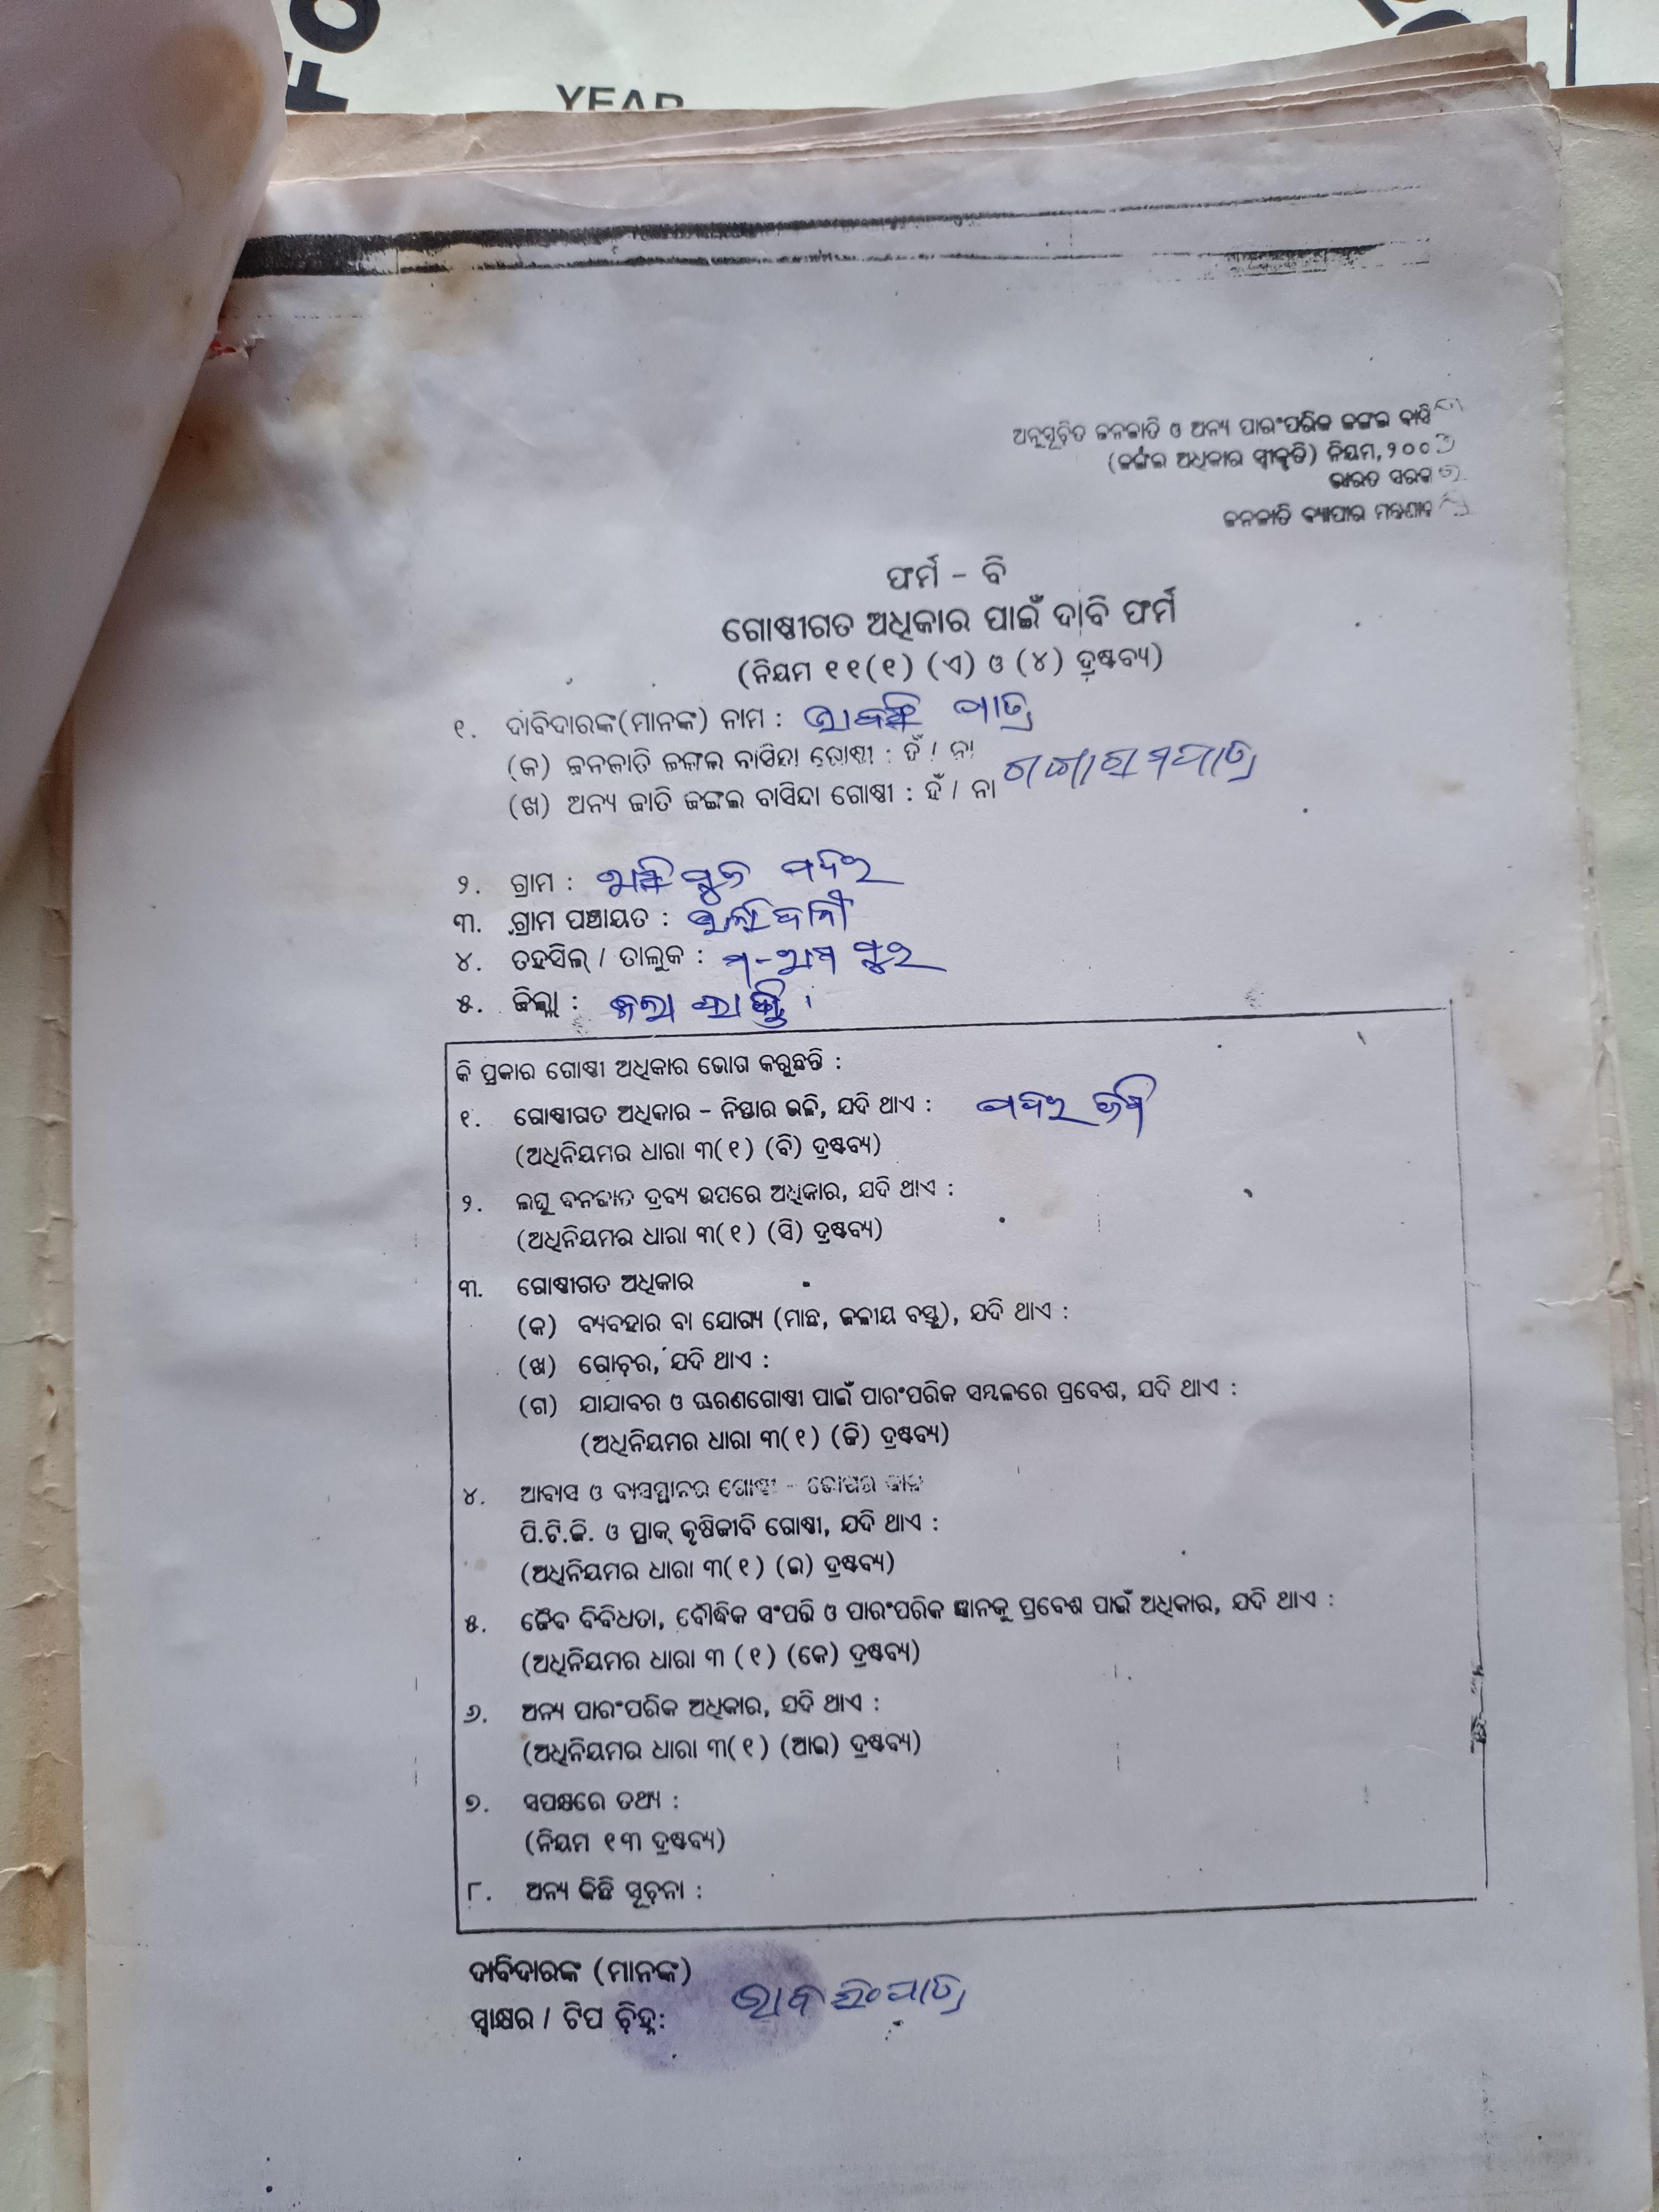 FO
YEAR
ଅନୁସୂଚିତ ଜନଜାତି ଓ ଅନ୍ୟ ପାରଂପରିକ ଜଙ୍ଗଲ ବାସି
(ଜଙ୍ଗଲ ଅଧିକାର ସ୍ୱୀକୃତି) ନିୟମ, ୨୦୦
ଭାରତ ସରକ
ଜନଜାତି ବ୍ୟାପାର ମନ୍ତ୍ରଣାଳ
ଫର୍ମ - ବି
ଗୋଷ୍ଠୀଗତ ଅଧିକାର ପାଇଁ ଦାବି ଫର୍ମ
(ନିୟମ ୧୧(୧) (ଏ) ଓ (୪) ଦ୍ରଷ୍ଟବ୍ୟ)
୧. ଦାବିଦାରଙ୍କ(ମାନଙ୍କ) ନାମ : ପାତ୍ର
(କ) ଜନଜାତି ଜଙ୍ଗଲ ବାସିନ୍ଦା ଗୋଷ୍ଠୀ : ହଁ / ନା
(ଖ) ଅନ୍ୟ ଜାତି ଜଙ୍ଗଲ ବାସିନ୍ଦା ଗୋଷ୍ଠୀ : ହଁ / ନା
୨. ଗ୍ରାମ :
୩. ଗ୍ରାମ ପଞ୍ଚାୟତ :
୪. ତହସିଲ୍ / ତାଲୁକ :
୫. ଜିଲ୍ଲା : କଳାହାଣ୍ଡି
କି ପ୍ରକାର ଗୋଷ୍ଠୀ ଅଧିକାର ଭୋଗ କରୁଛନ୍ତି :
୧. ଗୋଷ୍ଠୀଗତ ଅଧିକାର - ନିସ୍ତାର ଭଳି, ଯଦି ଥାଏ :
(ଅଧିନିୟମର ଧାରା ୩(୧) (ବି) ଦ୍ରଷ୍ଟବ୍ୟ)
୨. ଲଘୁ ବନଜାତ ଦ୍ରବ୍ୟ ଉପରେ ଅଧିକାର, ଯଦି ଥାଏ :
(ଅଧିନିୟମର ଧାରା ୩(୧) (ସି) ଦ୍ରଷ୍ଟବ୍ୟ)
୩. ଗୋଷ୍ଠୀଗତ ଅଧିକାର
(କ) ବ୍ୟବହାର ବା ଯୋଗ୍ୟ (ମାଛ, ଜଳୀୟ ବସ୍ତୁ), ଯଦି ଥାଏ :
(ଖ) ଗୋଚର, ଯଦି ଥାଏ :
(ଗ) ଯାଯାବର ଓ ଚାରଣଗୋଷ୍ଠୀ ପାଇଁ ପାରଂପରିକ ସମ୍ବଳରେ ପ୍ରବେଶ, ଯଦି ଥାଏ :
(ଅଧିନିୟମର ଧାରା ୩(୧) (ଜି) ଦ୍ରଷ୍ଟବ୍ୟ)
୪. ଆବାସ ଓ ବାସସ୍ଥାନର ଗୋଷ୍ଠୀ -
ପି.ଟି.ଜି. ଓ ପ୍ରାକ୍ କୃଷିଜୀବି ଗୋଷ୍ଠୀ, ଯଦି ଥାଏ :
(ଅଧିନିୟମର ଧାରା ୩(୧) (ଇ) ଦ୍ରଷ୍ଟବ୍ୟ)
୫. ଜୈବ ବିବିଧତା, ବୌଦ୍ଧିକ ସଂପତ୍ତି ଓ ପାରଂପରିକ ଜ୍ଞାନକୁ ପ୍ରବେଶ ପାଇଁ ଅଧିକାର, ଯଦି ଥାଏ :
(ଅଧିନିୟମର ଧାରା ୩ (୧) (କେ) ଦ୍ରଷ୍ଟବ୍ୟ)
୬. ଅନ୍ୟ ପାରଂପରିକ ଅଧିକାର, ଯଦି ଥାଏ :
(ଅଧିନିୟମର ଧାରା ୩(୧) (ଆଇ) ଦ୍ରଷ୍ଟବ୍ୟ)
୭. ସପକ୍ଷରେ ତଥ୍ୟ :
(ନିୟମ ୧୩ ଦ୍ରଷ୍ଟବ୍ୟ)
୮. ଅନ୍ୟ କିଛି ସୂଚନା :
ଦାବିଦାରଙ୍କ (ମାନଙ୍କ)
ସ୍ୱାକ୍ଷର / ଟିପ ଚିହ୍ନ: